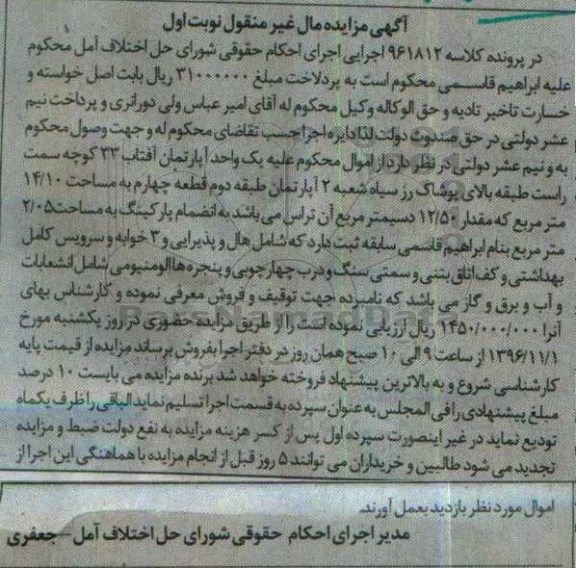 آگهی مزایده مال غیر منقول نوبت اول
در پرونده کلاسه ۹۶۱۸۱۲ اجرایی اجرای احکام حقوقی شورای حل اختلاف آمل محکوم
علیه ابراهیم قاسمی محکوم است به پرداخت مبلغ ۳۱۰۰۰۰۰۰ ریال بابت اصل خواسته و
خسارت تاخیر تادیه و حق الوکاله وکیل محکوم له آقای امیر عباس ولی دورانری و پرداخت نیم
عشر دولتی در حق صندوق دولت لذا دایره اجرا حسب تقاضای محکوم له و جهت وصول محکوم
به و نیم عشر دولتی در نظر دارد از اموال محکوم علیه یک واحد آپارتمان آفتاب ۳۳ کوچه سمت
راست طبقه بالای پوشاک رز سیاه شعبه ۲ آپارتمان طبقه دوم قطعه چهارم به مساحت ۱۴/۱۰
متر مربع که مقدار ۱۲/۵۰ دسیمتر مربع آن تراس می باشد به انضمام پارکینگ به مساحت ۲/۰۵
متر مربع بنام ابراهیم قاسمی سابقه ثبت دارد که شامل هال و پذیرایی و ۳ خوابه و سرویس کامل
بهداشتی و کف اتاق بتنی و سمتی سنگ و درب چهارچوبی و پنجره ها الومنیومی شامل انشعابات
و آب و برق و گاز می باشد که نامبرده جهت توقیف و فروش معرفی نموده و کارشناس بهای
آنرا ۱۴۵۰/۰۰۰/۰۰۰ ریال ارزیابی نموده است را از طریق مزایده حضوری در روز یکشنبه مورخ
۱۳۹۶/۱۱/۱ از ساعت ۹ الی ۱۰ صبح همان روز در دفتر اجرا بفروش برساند مزایده از قیمت پایه
کارشناسی شروع و به بالاترین پیشنهاد فروخته خواهد شد برنده مزایده می بایست ۱۰ درصد
مبلغ پیشنهادی را فی المجلس به عنوان سپرده به قسمت اجرا تسلیم نماید الباقی را ظرف یکماه
تودیع نماید در غیر اینصورت سپرده اول پس از کسر هزینه مزایده به نفع دولت ضبط و مزایده
تجدید می شود طالبین و خریداران می توانند ۵ روز قبل از انجام مزایده با هماهنگی این اجرا از
اموال مورد نظر بازدید بعمل آورند.
مدیر اجرای احکام حقوقی شورای حل اختلاف آمل – جعفری
ParsNamadData